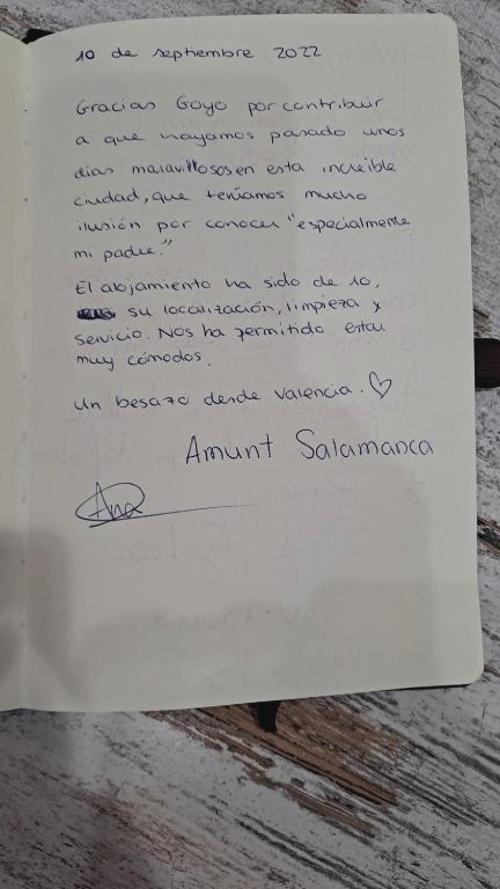 10 de septiembre 2022
Gracias Goyo por contribuir
a que hayamos pasado unos
días maravillosos en esta increíble
ciudad, que teníamos mucho
ilusión por conocer "especialmente
mi padre."
El alojamiento ha sido de 10,
su localización, limpieza y
servicio. Nos ha permitido estar
muy cómodos.
Un besazo desde Valencia. ♡
Amunt Salamanca
Ana